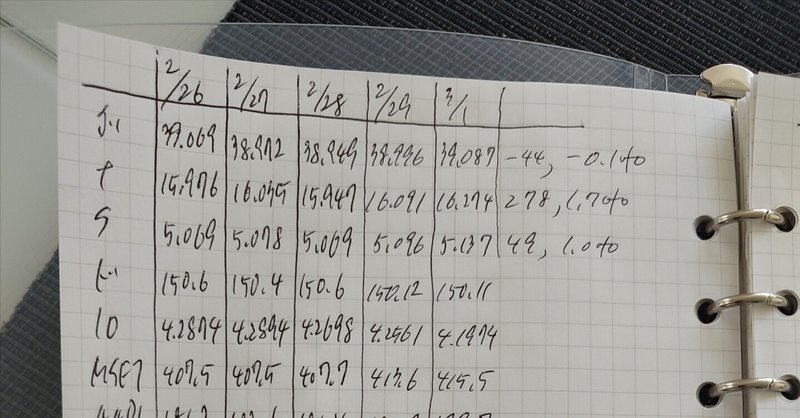 2/26 2/27 2/28 2/29 3/1
39.069 38.972 38.949 38.996 39.087 -44, -0.1%
ナ 15.976 16.035 15.947 16.091 16.274 278, 1.7%
S 5.069 5.078 5.069 5.096 5.137 49, 1.0%
ド 150.6 150.4 150.6 150.12 150.11
10 4.2874 4.2894 4.2698 4.2561 4.1974
MSFT 407.5 407.5 407.7 413.6 415.5